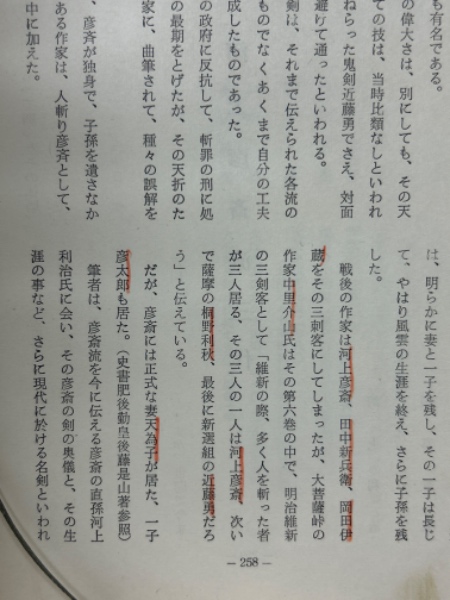 も有名である。
の偉大さは、別にしても、その天
ての技は、当時比類なしといわれ
ねらった鬼剣近藤勇でさえ、対面
避けて通ったといわれる。
剣は、それまで伝えられた各流の
ものでなくあくまで自分の工夫
成したものであった。
の政府に反抗して、斬罪の刑に処
の最期をとげたが、その天折のた
家に、曲筆されて、種々の誤解を
、彦斉が独身で、子孫を遺さなか
ある作家は、人斬り彦斉として、
中に加えた。
は、明らかに妻と一子を残し、その一子は長じ
て、やはり風雲の生涯を終え、さらに子孫を残
した。
戦後の作家は河上彦斎、田中新兵衛、岡田伊
蔵をその三刺客にしてしまったが、大菩薩峠の
作家中里介山氏はその第六巻の中で、明治維新
の三剣客として「維新の際、多く人を斬った者
が三人居る、その三人の一人は河上彦斎、次い
で薩摩の桐野利秋、最後に新選組の近藤勇だろ
う」と伝えている。
だが、彦斎には正式な妻天為子が居た、一子
彦太郎も居た。(史書肥後勤皇後藤是山著参照)
筆者は、彦斎流を今に伝える彦斎の直孫河上
利治氏に会い、その彦斎の剣の奥儀と、その生
涯の事など、さらに現代に於ける名剣といわれ
— 258 —